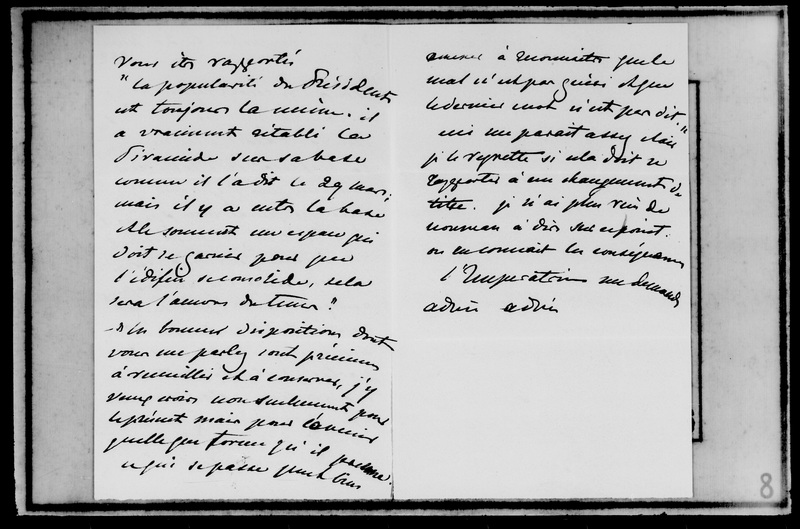 vous êtes rapportés
"la popularité du Président
est toujours la même. il
a vraiment rétabli la
Piramide sur sa base
comme il l'a dit le 29 mars;
mais il y a entre la base
et le sommet un espace qui
doit se garnir pour que
l'édifice se consolide, cela
sera l'œuvre du tems."
les bonnes dispositions dont
vous me parlez sont précieuses
à recueillir et à conserver, j'y
veux croire non seulement pour
le présent mais pour l'avenir
quelle que forme qu'il prenne.
ce qui se passe
à que le
mal n'est pas guéri et que
le dernier mot n'est pas dit."
ceci me parait assez clair
je le regrette si cela doit se
rapporter à un changement de
titre. je n'ai plus rien de
nouveau à dire sur ce point.
on en connait les conséquences
l'Impératrice me demande
adieu adieu
8